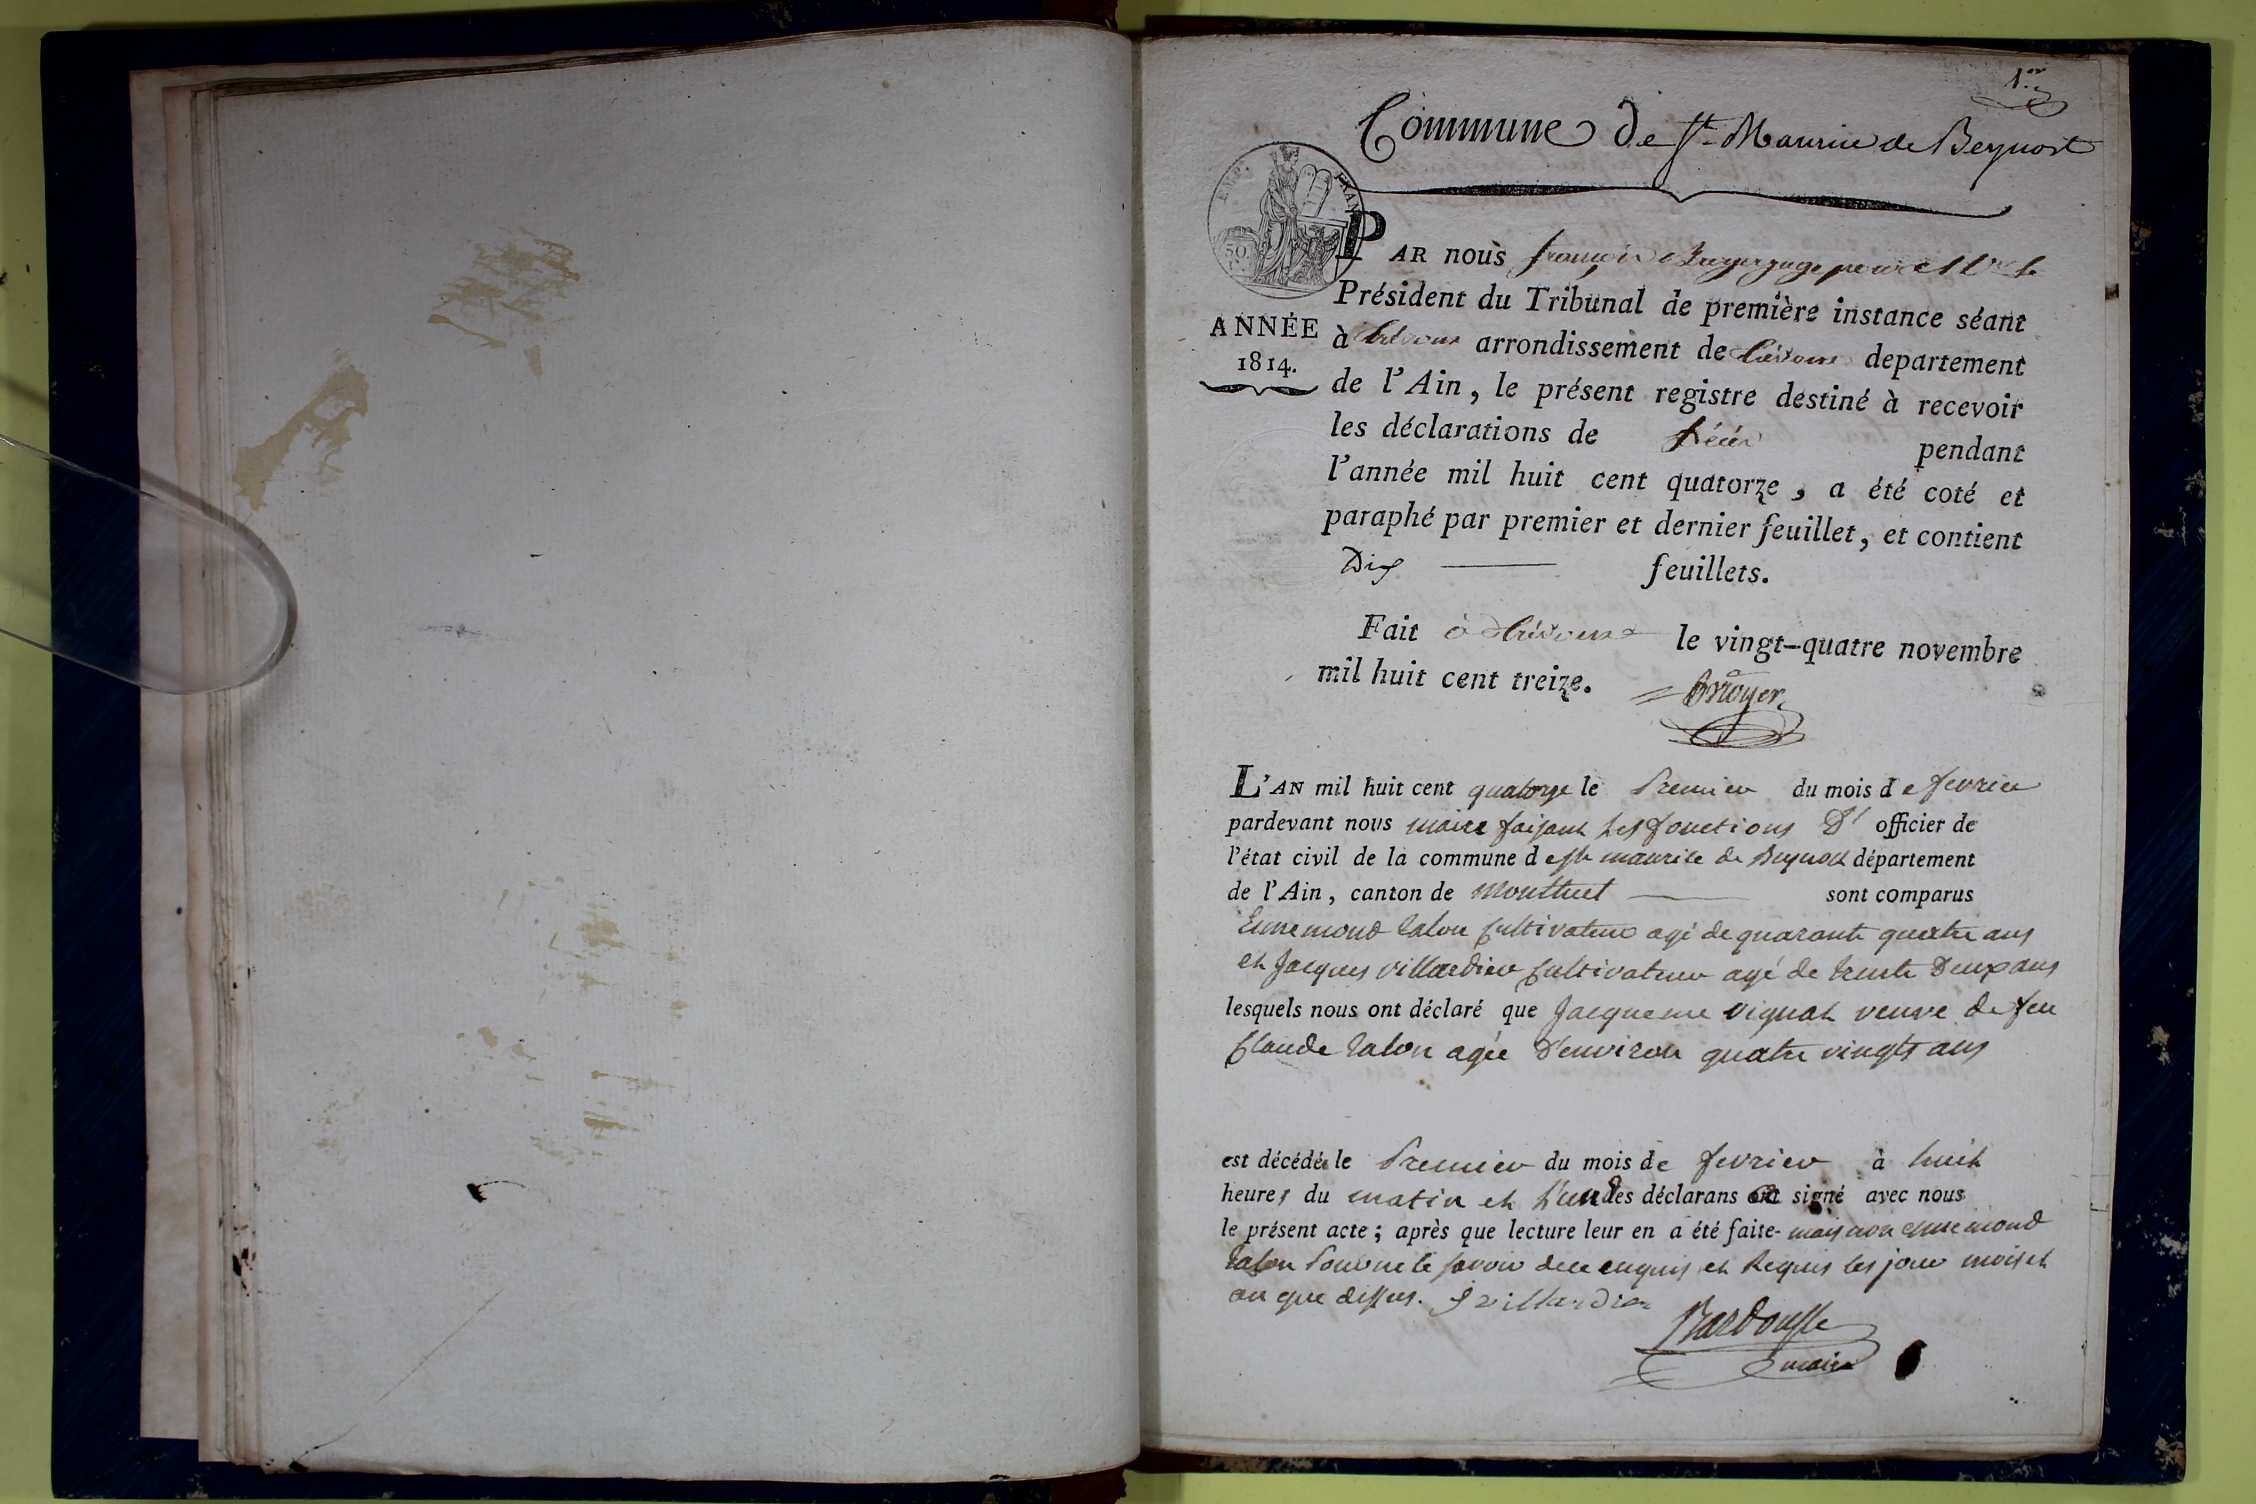 1.er
Commune De St Maurice de Beynost
EMP. FRAN
50
PAR nous françois Bruyer juge pour et
Président du Tribunal de première instance séant
à trévoux arrondissement de trévoux departement
ANNÉE
1814.
de l'Ain, le présent registre destiné à recevoir
les déclarations de Décès pendant
l'année mil huit cent quatorze, a été coté et
paraphé par premier et dernier feuillet, et contient
Dix feuillets.
Fait à trévoux le vingt-quatre novembre
mil huit cent treize.
L'AN mil huit cent quatorze le Premier du mois de fevrier
pardevant nous maire faisant les fonctions D' officier de
l'état civil de la commune de st maurice de Beynost département
de l'Ain, canton de Montluel sont comparus
Ennemond talon Cultivateur agé de quarante quatre ans
et Jacques villardier Cultivateur agé de trente Deux ans
lesquels nous ont déclaré que Jacqueme vignat veuve de feu
Claude talon agée D'environ quatre vingts ans
est décédée le Premier du mois de fevrier à huit
heures du matin et L'un des déclarans a signé avec nous
le présent acte; après que lecture leur en a été faite mais non ennemond
talon Pour ne le savoir de ce enquis et Requis les jour mois et
an que dessus. J villardier
Bardousse
maire